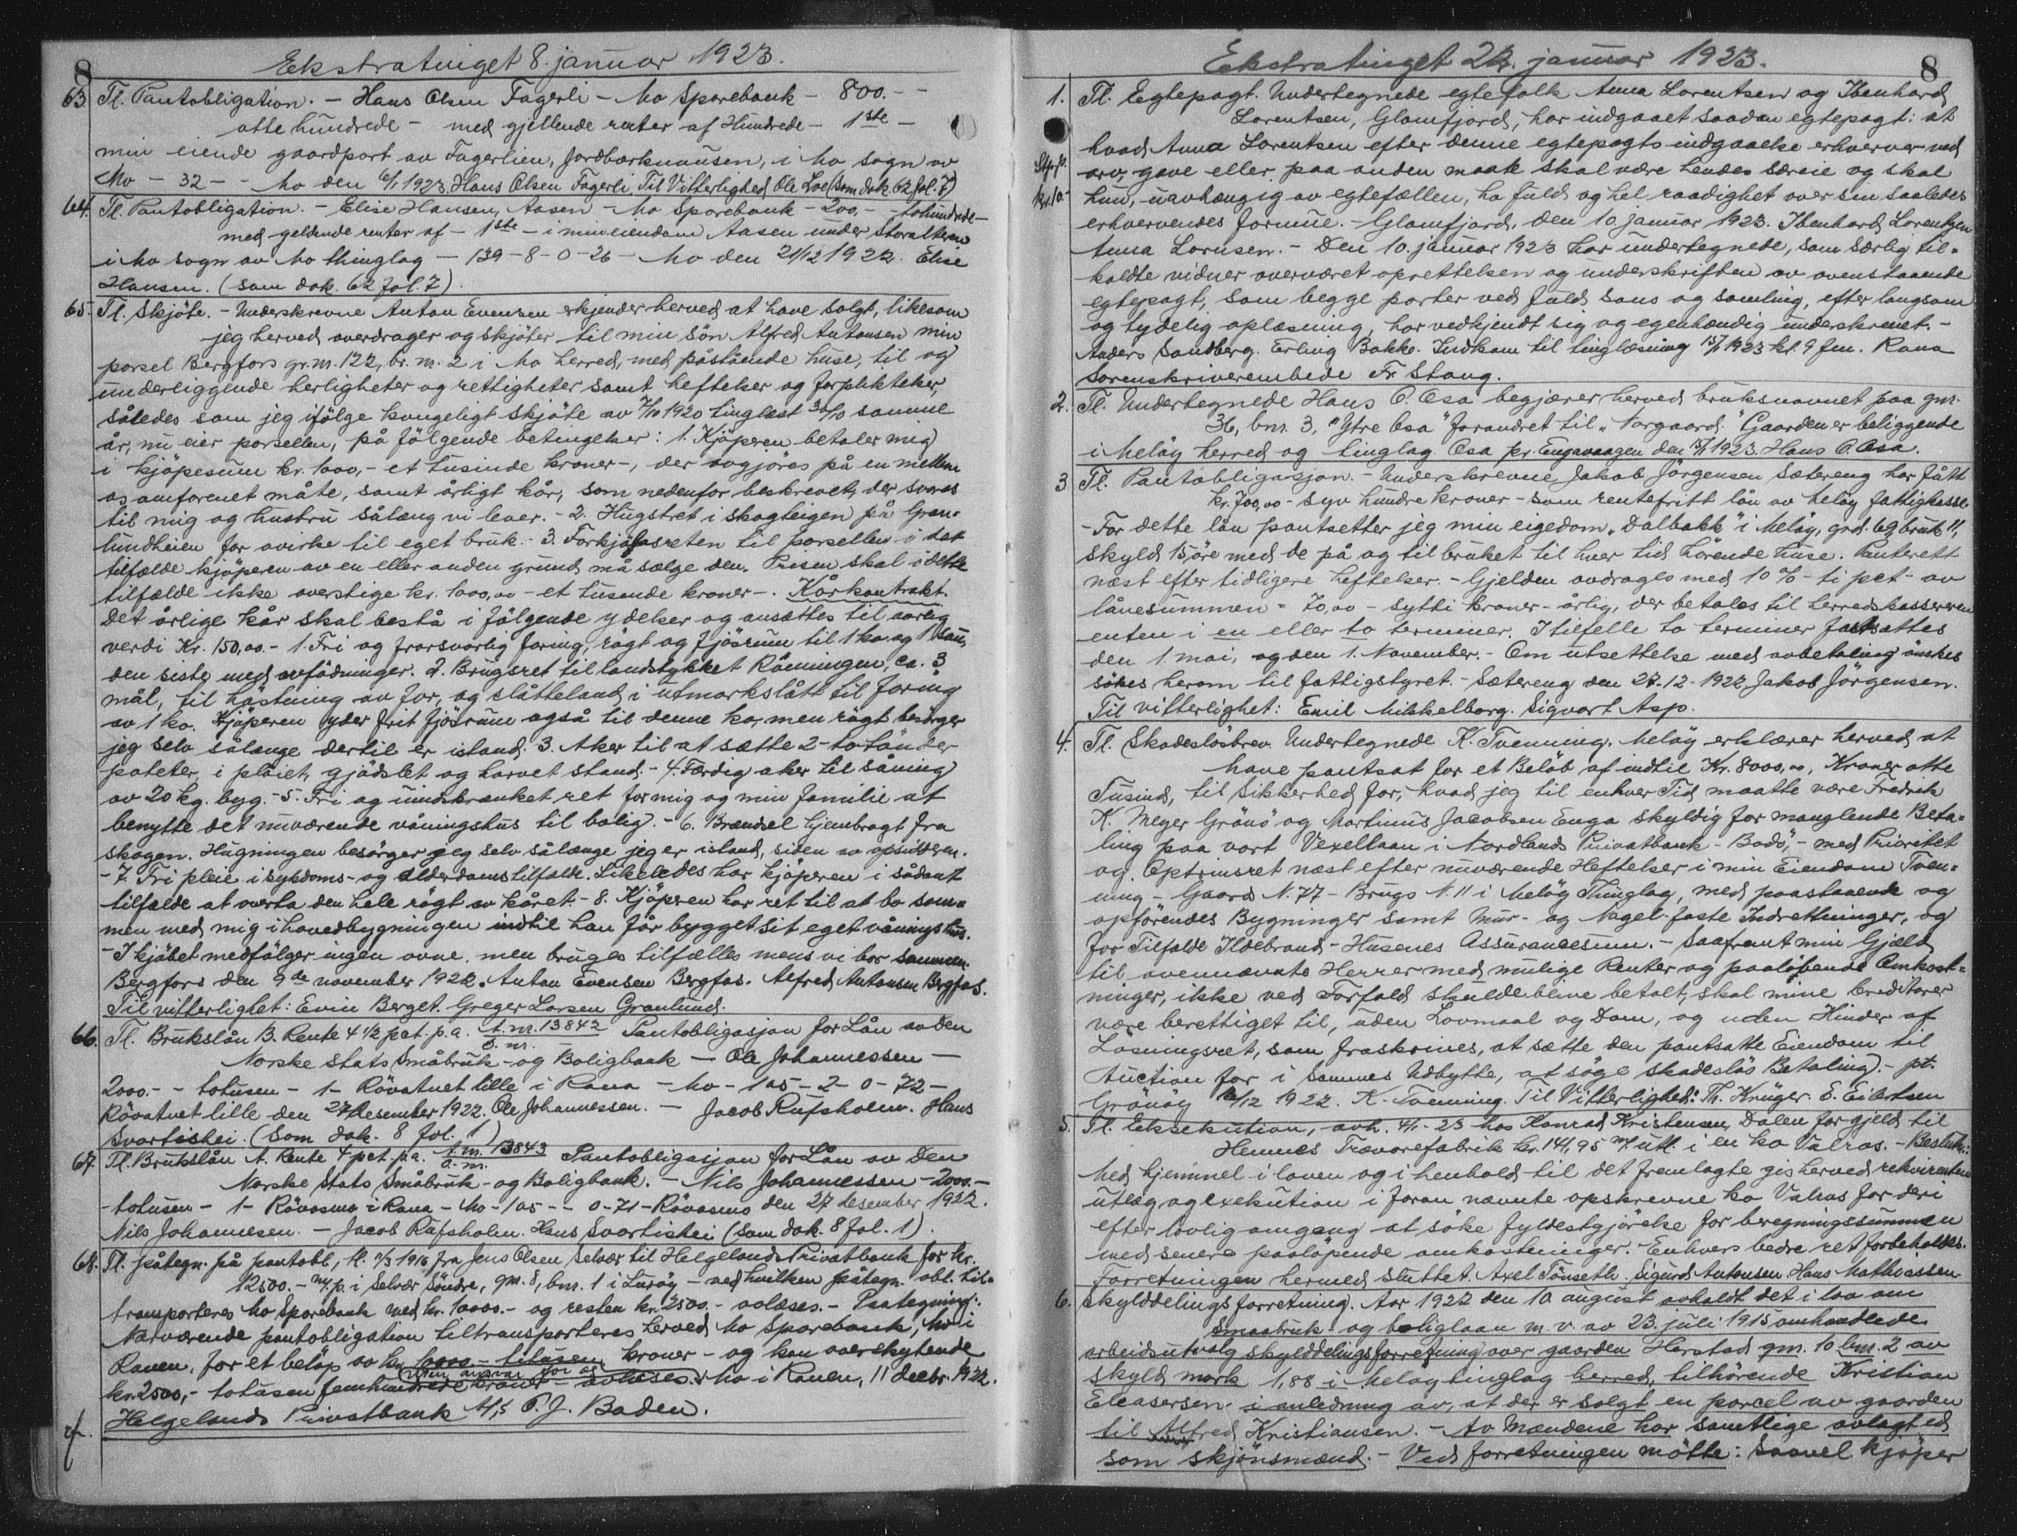 8
Ekstratinget 8. januar 1923.
63 Tl. Pantobligation. - Hans Olsen Fagerli - Mo Sparebank - 800.- -
otte hundrede - med gjellende renter af Hundrede - 1ste -
min eiende gaardpart av Fagerlien, Jordbærknausen, i Mo sogn av
Mo - 32 - - Mo den 6/1 1923. Hans Olsen Fagerli. Til Vitterlighed Ole Loe (som dok. 62 fol. 7)
64. Tl. Pantobligation. - Elise Hansen, Aasen - Mo Sparebank - 200,- tohundrede -
med geldende renter af - 1ste - i min eiendom Aasen under Storalteren
i Mo sogn av Mo thinglag - 139 - 8 - 0 - 26 - Mo den 21/12 1922. Elise
Hansen. (som dok. 62 fol. 7).
65. Tl. Skjöte. - Underskrevne Anton Evensen erkjender herved at have solgt, likesom
jeg herved overdrager og skjöter til min sön Alfred Antonsen min
parsel Bergfors gr.m. 122, br. m. 2 i Mo herred, med påstående huse, til og
underliggende herligheter og rettigheter samt heftelser og forpliktelser,
således som jeg ifölge kongeligt skjöte av 7/10 1920 tinglæst 30/10 samme
år, nu eier parsellen, på fölgende betingelser: 1. Kjöperen betaler mig
i kjöpesum kr. 1000,- et tusinde kroner -, der avgjöres på en mellem
os omforenet måte, samt årligt kår, som nedenfor beskrevet, der svares
til mig og hustru sålæng vi lever. - 2. Hugstret i skogteigen på Grøn-
lundheien for avirke til eget bruk. - 3. Forkjöpsreten til parsellen i det
tilfælde kjöperen av en eller anden grund må sælge den. Prisen skal i dette
tilfælde ikke overstige kr. 1000,00 - et tusende kroner -. Kårkontrakt.
Det årlige kår skal bestå i fölgende ydelser og ansættes til aarlig
verdi Kr. 150,00. - 1. Fri og forsvarlig foring, rögt og fjösrum til 1 ko og 1 sau,
den siste med avfödninger. 2. Brugsret til landstykket Råmningen, ca. 3
mål, til höstning av for, og slåtteland i utmarkslått til foring
av 1 ko. Kjöperen yder frit fjösrum også til denne ko, men rögt besörger
jeg selv sålænge dertil er istand. 3. Aker til at sætte 2 - to tönder
poteter i plöiet, gjödslet og harvet stand. - 4. Færdig aker til såning
av 20 kg. byg. - 5. Fri og uindskrænket ret for mig og min familie at
benytte det nuværende våningshus til bolig. - 6. Brændsel hjembragt fra
skogen. Hugningen besörger jeg selv sålænge jeg er istand, siden av opsidderen.
- 7. Fri pleie i sykdoms- og alderdomstilfælde. Likeledes har kjöperen i sådant
tilfælde at overta den hele rögt av kåret. - 8. Kjöperen har ret til at bo sam-
men med mig i hovedbygningen indtil han får bygget sit eget våningshus.
- I kjöbet medfölger ingen ovne, men bruges tilfælles mens vi bor sammen.
Bergfors den 9de november 1922. Anton Evensen Bergfos. Alfred Antonsen Bergfos.
Til vitterlighet: Evin Berget. Greger Larsen Grønlund.
66. Tl. Brukslån B. Rente 4 1/2 pct. p.a. t.nr. 13842 Pantobligasjon for Lån av Den
Norske Stats Småbruk- og Boligbank - Ole Johannessen -
2000. - - totusen - 1 - Rövatnet lille i Rana - Mo - 105 - 2 - 0 - 72 -
Rövatnet lille den 27 desember 1922. Ole Johannessen. - Jacob Rufsholm. Hans
Svartishei. (Som dok. 8 fol. 1)
67. Tl. Brukslån A. Rente 4 pct. p.a. t.nr. 13843 Pantobligasjon for Lån av Den
Norske Stats Småbruk- og Boligbank. - Nils Johannessen - 2000. -
- totusen - 1 - Rövasmo i Rana - Mo - 105 - - 0 - 71 - Rövasmo den 27 desember 1922.
Nils Johannesen. - Jacob Rufsholm. Hans Svartishei (Som dok. 8 fol. 1).
68. Tl. påtegn. på pantobl., tl. 1/3 1916 fra Jens Olsen Selvær til Helgelands Privatbank for kr.
12500. - m/p. i Selvær Söndre, gm. 8, bnr. 1 i Luröy - ved hvilken påtegn. obl. til-
transporteres Mo Sparebank med kr. 10000.- og resten kr. 2500.- avlæses. - Paategning:
Nærværende pantobligation tiltransporteres herved Mo Sparebank, Mo i
Ranen, for et beløp av kr. 10000 - titusen kroner - og kan overskytende
kr. 2500,- totusen femhundrede kroner avlæses. Uten ansvar for os Mo i Ranen, 11 decbr. 1922.
Helgelands Privatbank A/S O. J. Baden.

8
Ekstratinget 22. januar 1923.
1. Tl. Egtepagt. Undertegnede egtefolk Anna Lorentsen og Ibenhard
Lorentsen, Glomfjord, har indgaaet saadan egtepagt: at
hvad Anna Lorentsen efter denne egtepagts indgaaelse erhverver ved
Stp. p. arv, gave eller paa anden maate skal være hendes særeie og skal
kr. 10- hun, uavhængig av egtefællen, ha fuld og hel raadighet over sin saaledes
erhvervendes formue. - Glomfjord, den 10 januar 1923. Ibenhard Lorentzen
Anna Lornsen. - Den 10. januar 1923 har undertegnede, som særlig til-
kaldte vidner overværet oprettelsen og underskriften av ovenstaaende
egtepagt, som begge parter ved fuld sans og samling, efter langsom
og tydelig oplæsning, har vedkjendt sig og egenhændig underskrevet. -
Anders Sandberg. Erling Bakke. Indkom til tinglæsning 15/1 1923 kl. 9 fm. Rana
Sorenskriverembede Fr. Stang.
2. Tl. Undertegnede Hans O. Osa begjærer herved bruksnavnet paa gnr.
36, bnr. 3, "Ytre Osa" forandret til "Norgaard." Gaarden er beliggende
i Meløy herred og tinglag. Osa pr. Engavaagen den 15/1 1923. Hans O. Osa.
3 Tl. Pantobligasjon. - Underskrevne Jakob Jörgensen Sætereng har fått
kr. 700,00 - syv hundre kroner - som rentefritt lån av Meløy fattigkasse.
- For dette lån pantsetter jeg min eigedom "Dalbakk" i Meløy, grd. 69 bruk 11,
skyld 15 öre med de på og til bruket til hver tid hörende huse. Panterett
næst efter tidligere heftelser. - Gjelden avdrages med 10 % - ti pct - av
lånesummen = 70,00 - sytti kroner - årlig, der betales til herredskassereren
enten i en eller to terminer. I tilfelle to terminer fastsættes
den 1. mai, og den 1. November. - Om utsettelse med avbetaling ønskes
sökes herom til fattigstyret. - Sætereng den 27-12-1922. Jakob Jörgensen.
Til vitterlighet: Emil Mikkelborg. Sigvart Asp.
4. Tl. Skadeslösbrev. Undertegnede K. Tvenning. Meløy erklærer herved at
have pantsat for et Beløb af indtil Kr. 8000,00, Kroner otte
Tusind, til Sikkerhed for, hvad jeg til enhver Tid maatte være Fredrik
K. Meyer Grönö og Martinus Jacobsen Enga skyldig for manglende Beta-
ling paa vort Vexellaan i Nordlands Privatbank - Bodö, - med Prioritet
og Optrinsret næst efter nuværende Heftelser i min Eiendom Tven-
ning - Gaard N. 77 - Brugs N. 11 i Melöy Thinglag, med paastaaende og
opförendes Bygninger samt Mur- og Nagel-faste Indretninger, og
for Tilfælde Ildebrand - Husenes Assurancesum. - Saafremt min Gjæld
til ovennævnte Herrer med mulige Renter og paalöbende Omkost-
ninger, ikke ved Forfald skulde blive betalt, skal mine Creditorer
være berettiget til, uden Lovmaal og Dom, og uden Hinder af
Løsningsret, som fraskrives, at sætte den pantsatte Eiendom til
Auction for i Sammes Udbytte, at söge skadeslös Betaling. - pt.
Grönøy /12 1922. K. Tvenning. Til Vitterlighed: Th. Krüger. E. Eilertsen
5. Tl. Eksekution, avh. 4/1-23 hos Konrad Kristensen, Dalen for gjeld til
Hemnes Trævarefabrik kr. 141,95 m/ utl. i en ko Valros. - Beslutn.:
Med hjemmel i loven og i henhold til det fremlagte gis herved rekvirenten
utlæg og exekution i foran nævnte opskrevne ko Valros for deri
efter lovlig omgang at söke fyldestgjörelse for beregningssummen
med senere paalöpende omkostninger. - Enhvers bedre ret forbeholdes.
Forretningen hermed sluttet. Axel Tönseth. Sigurd Antonsen. Hans Mathiassen.
6. Skylddelingsforretning. Aar 1922 den 10 august avholdt det i lov om
smaabruk og boliglaan m.v. av 23. juli 1915 omhandlede
arbeidsutvalg skylddelingsforretning over gaarden Herstad gm. 10 bm. 2 av
skyld mark 1,88 i Meløy tinglag herred, tilhörende Kristian
Eleasersen i anledning av, at der er solgt en parcel av gaarden
til Alfred Kristiansen. - Av mændene har samtlige avlagt ed
som skjönsmænd. - Ved forretningen mötte: Saavel kjöper